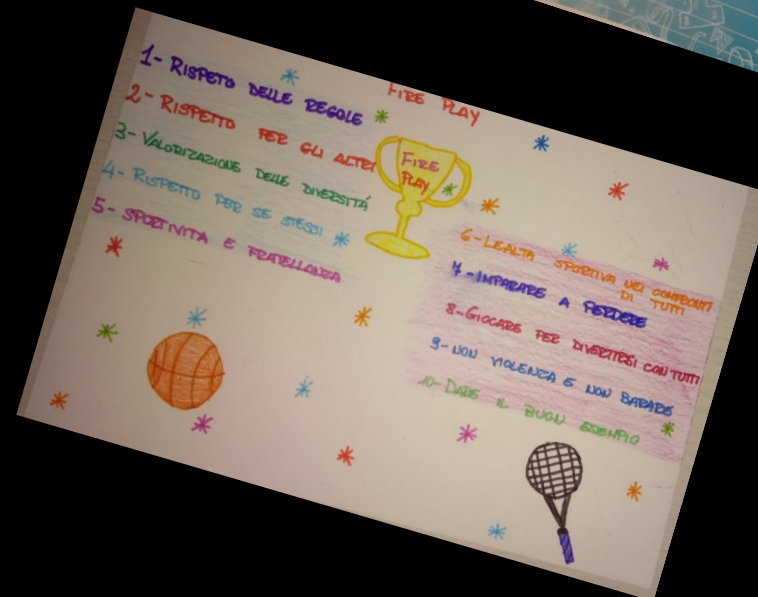 FIRE PLAY
1- RISPETO DELLE REGOLE
2- RISPETTO PER GLI ALTRI
3- VALORIZAZIONE DELLE DIVERSITÁ
4- RISPETTO PER SE STESSI
5- SPORTIVITA E FRATELLANZA
FIRE
PLAY
6-LEALTA SPORTIVA NEI CONFRONTI
DI TUTTI
7-IMPARARE A PERDERE
8-GIOCARE PER DIVERTIRSI CON TUTTI
9-NON VIOLENZA E NON BARARE
10-DARE IL BUON ESEMPIO